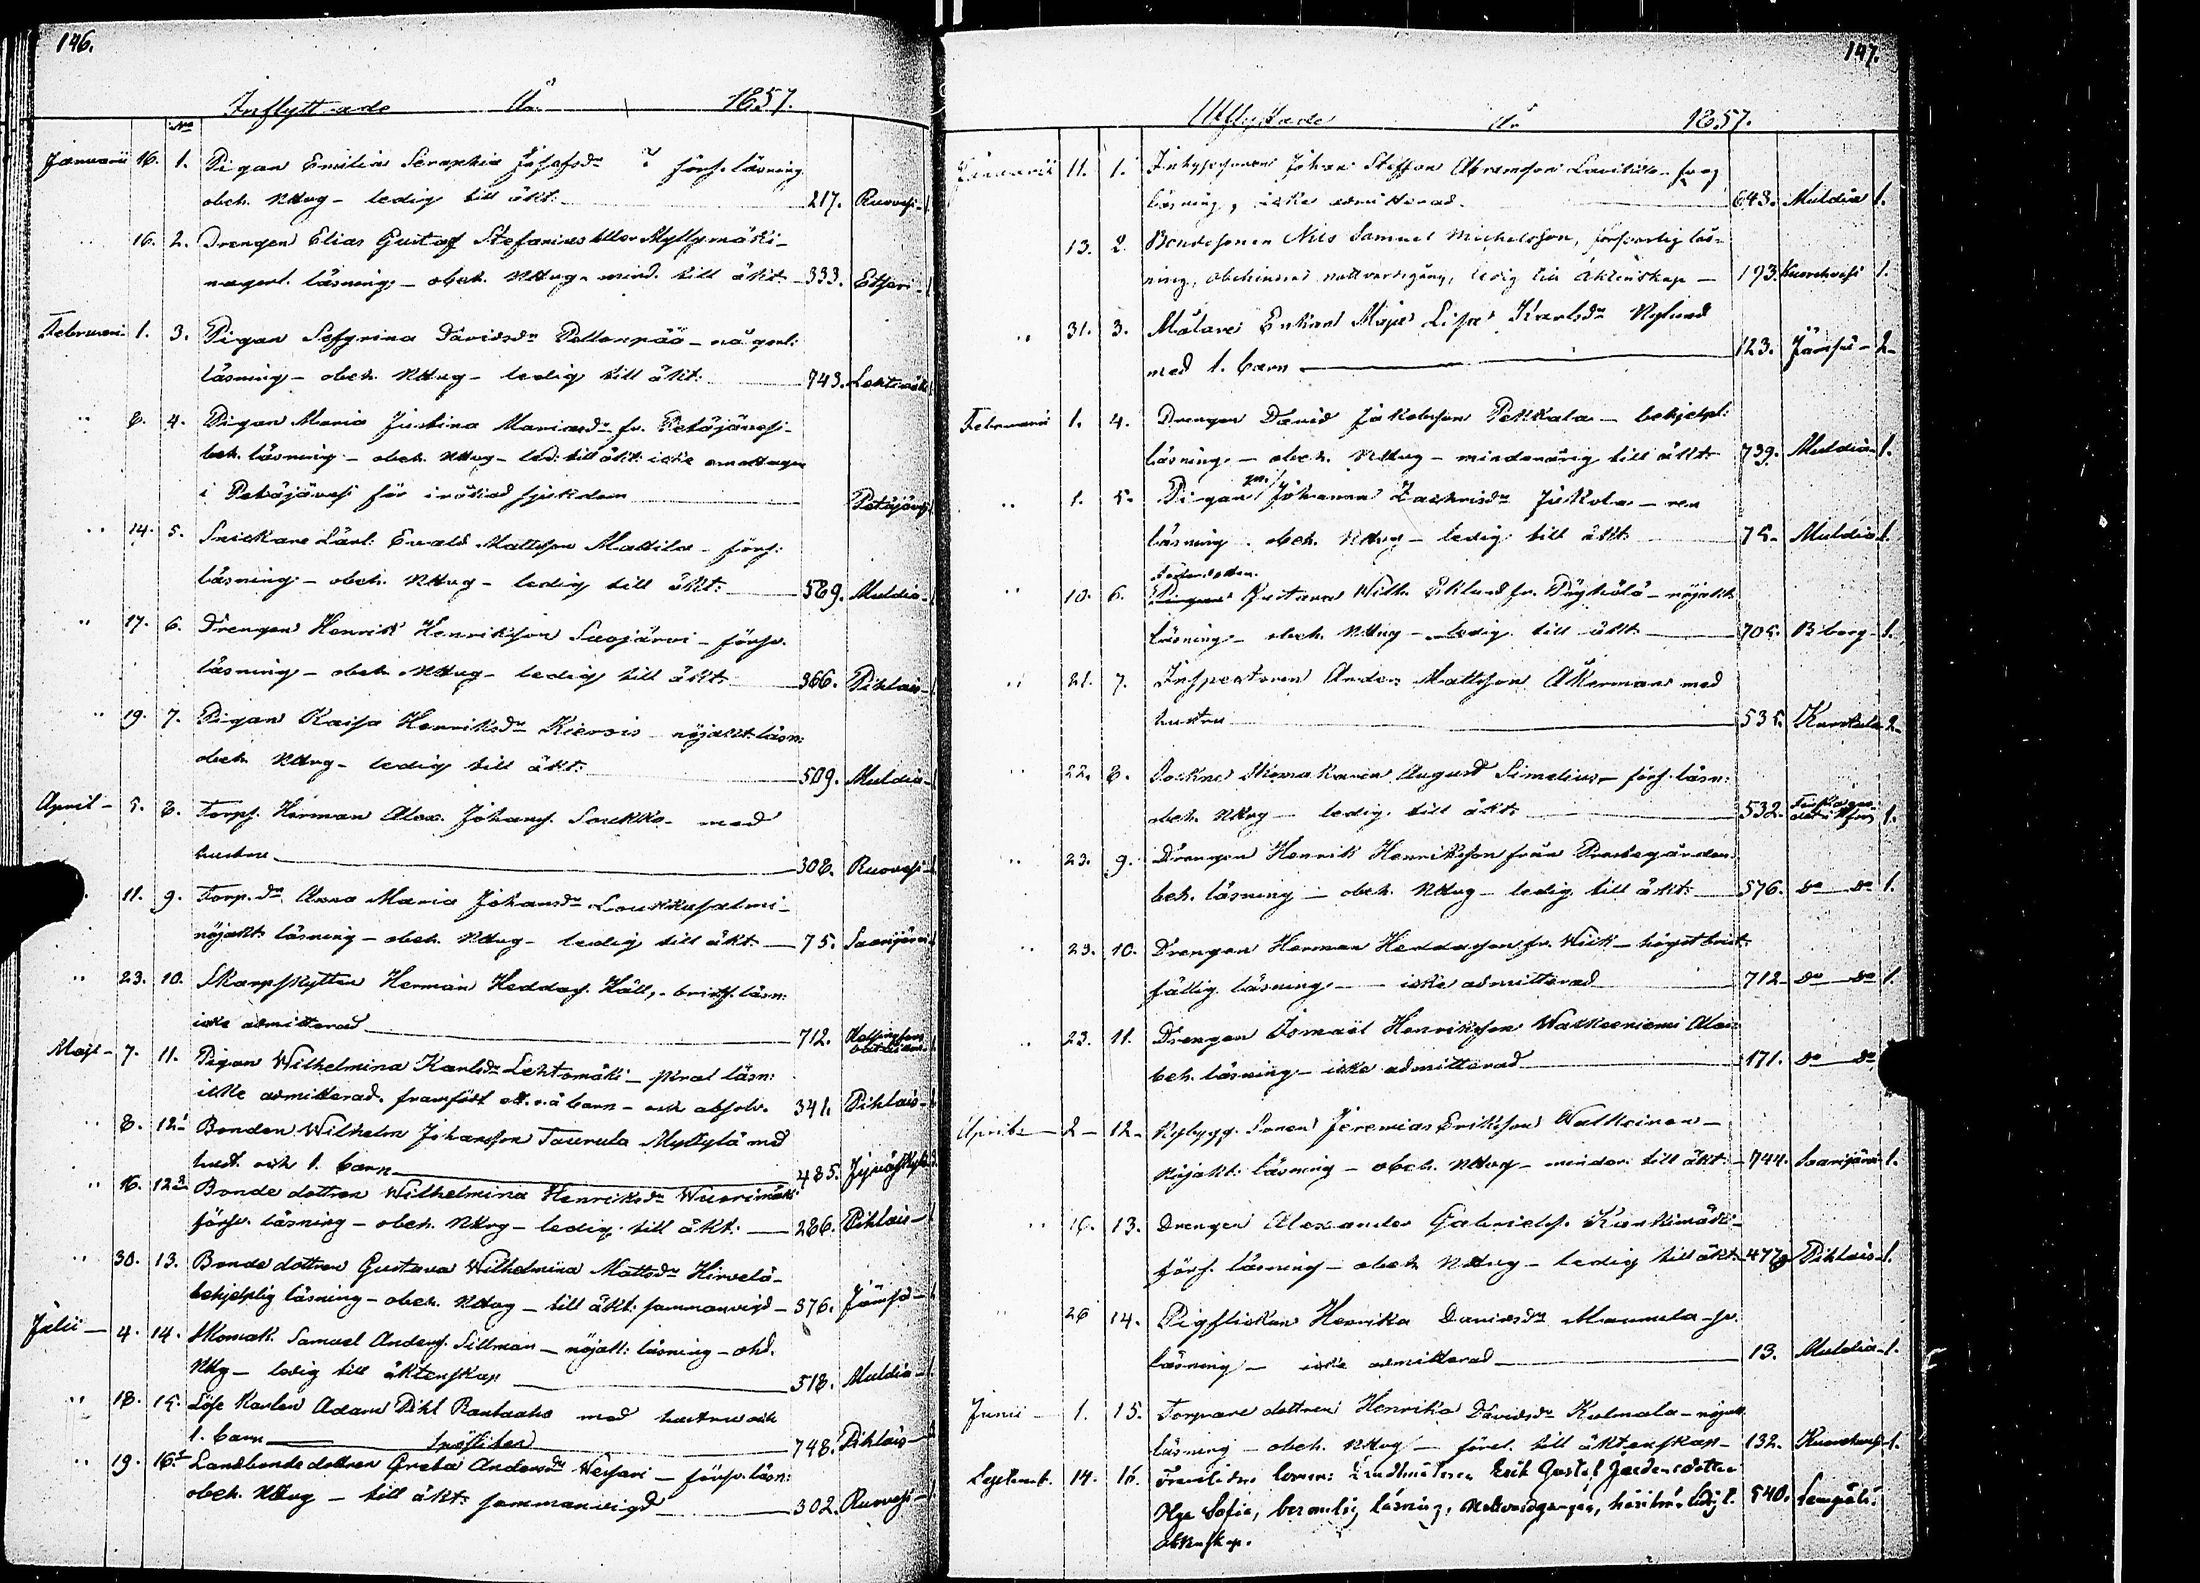 146.
Inflyttade År 1857.
No
Januarii 16. 1. Pigan Emilia Seraphia Josefsdr förs. läsning
obeh. NHvg - ledig till äkt. 217. Ruovesi 1
" 16. 2. Drengen Elias Gustaf Stefanius Myllymäki -
någorl. läsning - obeh. NHvg - mind. till äkt. 333. Etseri 1
Februari 1. 3. Pigan Davidsdr - någorl.
läsning - obeh. NHvg - ledig till äkt. 743.
" 8. 4. Pigan Maria Justina Mariasdr fr. Petäjävesi -
beh. läsning - obeh. NHvg - led. till äkt. icke emottagen
i Petäjävesi för sjukdom Petäjävesi
" 14. 5. Snickare Lärl. Evald Mattsson Mattila - förs.
läsning - obeh. NHvg - ledig till äkt. 589. Muldia 1
" 17. 6. Drengen Henrik Henriksson Saojärvi - förs.
läsning - obeh. NHvg - ledig till äkt. 366. Pihlais 1
" 19. 7. Pigan Kaisa Henriksdr - nöjakt. läsn.
obeh. NHvg - ledig till äkt. 509. Muldia
April 5. 8. Torp. Herman Alex. Johans. Soukko - med
hustru 308. Ruovesi
" 11. 9. Torp.dr Anna Maria Johansdr Loukkusalmi -
nöjakt. läsning - obeh. NHvg - ledig till äkt. - 75. Saarijärvi
" 23. 10. Skarpskytten Herman Heddas. Häll, - läsn.
icke admitterad 712. Helsingfors
Maji 7. 11. Pigan Wilhelmina Karlsdr Lehtomäki - läsn.
icke admitterad. framfödt ett o.ä barn - och absolv. 341. Pihlais
" 8. 12 Bonden Wilhelm Johansson Taurula Myllylä med
hust. och 1. barn 485. Jyväskylä
" 16. 12 Bonde dottren Wilhelmina Henriksdr Wuorimäki
förs. läsning - obeh. NHvg - ledig till äkt. 286. Pihlais
" 30. 13. Bonde dottren Gustava Wilhelmina Mattsdr Hirvelä -
behjelplig läsning - obeh. NHvg - till äkt. sammanvigd - 376. Jämsä
Julii 4. 14. Skomak. Samuel Anders. Sillman - nöjakt. läsning - obeh.
NHg - ledig till äktenskap 518. Muldia
" 18. 15. Löse Karlen Adam Pihl Rantaaho med hustru och
1. barn 748. Pihlais
" 19. 16 Landbonde dottren Greta Andersdr Wehari - förs. läsn.
obeh. NHvg - till äkt. sammanvigd 302. Ruovesi
147.
Utflyttade År 1857.
Januarii 11. 1. Johan Steffan Abramsson
läsning, icke admitterad. 643. Muldia 1.
13. 2. Bondesonen Nils Samuel Michelsson, försvarlig läs-
ning, obehindrad nattvardsgång, ledig till äktenskap - 193. Kuorehvesi 1.
" 31. 3. Målare Enkan Maja Lisa Karlsdr Nylund
med 1. barn 123. Jämsä - 2
Februarii 1. 4. Drengen David Jakobsson Pekkala - behjelpl.
läsning - obeh. NHvg - minderårig till äkt. 739. Muldia 1.
" 1. 5. Pigan Johanna Zachrisdr Jukola - ren
läsning - obeh. NHvg - ledig till äkt. 75. Muldia 1.
" 10. 6. Gustava Wilh. Eklund fr. Pöyhölä - nöjakt.
läsning - obeh. NHvg - ledig till äkt. 705. B borg 1.
" 21. 7. Inspectoren Anders Mattsson Åkerman med
hustru 535. 2
" 22. 8. Socknes Skomakaren August Simelius - förs. läsn.
obeh. NHvg - ledig till äkt. 532. 1.
" 23. 9. Drengen Henrik Henriksson från Prestegården
beh. läsning - obeh. NHvg - ledig till äkt. 576. do do 1.
" 23. 10. Drengen Herman Heddasson fr. Wick - högst brist-
fällig läsning - icke admitterad 712. do do 1.
" 23. 11. Drengen Ismaël Henriksson Walkeeniemi
beh. läsning - icke admitterad 171. do do
Aprilis 2 - 12. Nybygg. Sonen Jeremias Eriksson Walkeinen -
Nöjakt. läsning - obeh. NHvg - minder. till äkt. - 744. Saarijärvi 1.
" 16. 13. Drengen Alexander Gabriels. Kankimäki -
förs. läsning - obeh. NHvg - ledig till äkt. 477 Pihlais 1.
" 26 14. Pigflickan Henrika Davidsdr Maunula - sv.
läsning - icke admitterad 13. Muldia 1.
Junii 1. 15. Torpare dottren Henrika Davidsdr Kulmala - nöjakt.
läsning - obeh. NHvg - förel. till äktenskap - 132. 1.
Septemb. 14. 16. Landtmätaren Erik Gustaf
Olga Sofia, berömlig läsning, 540. Lempälä
äktenskap.